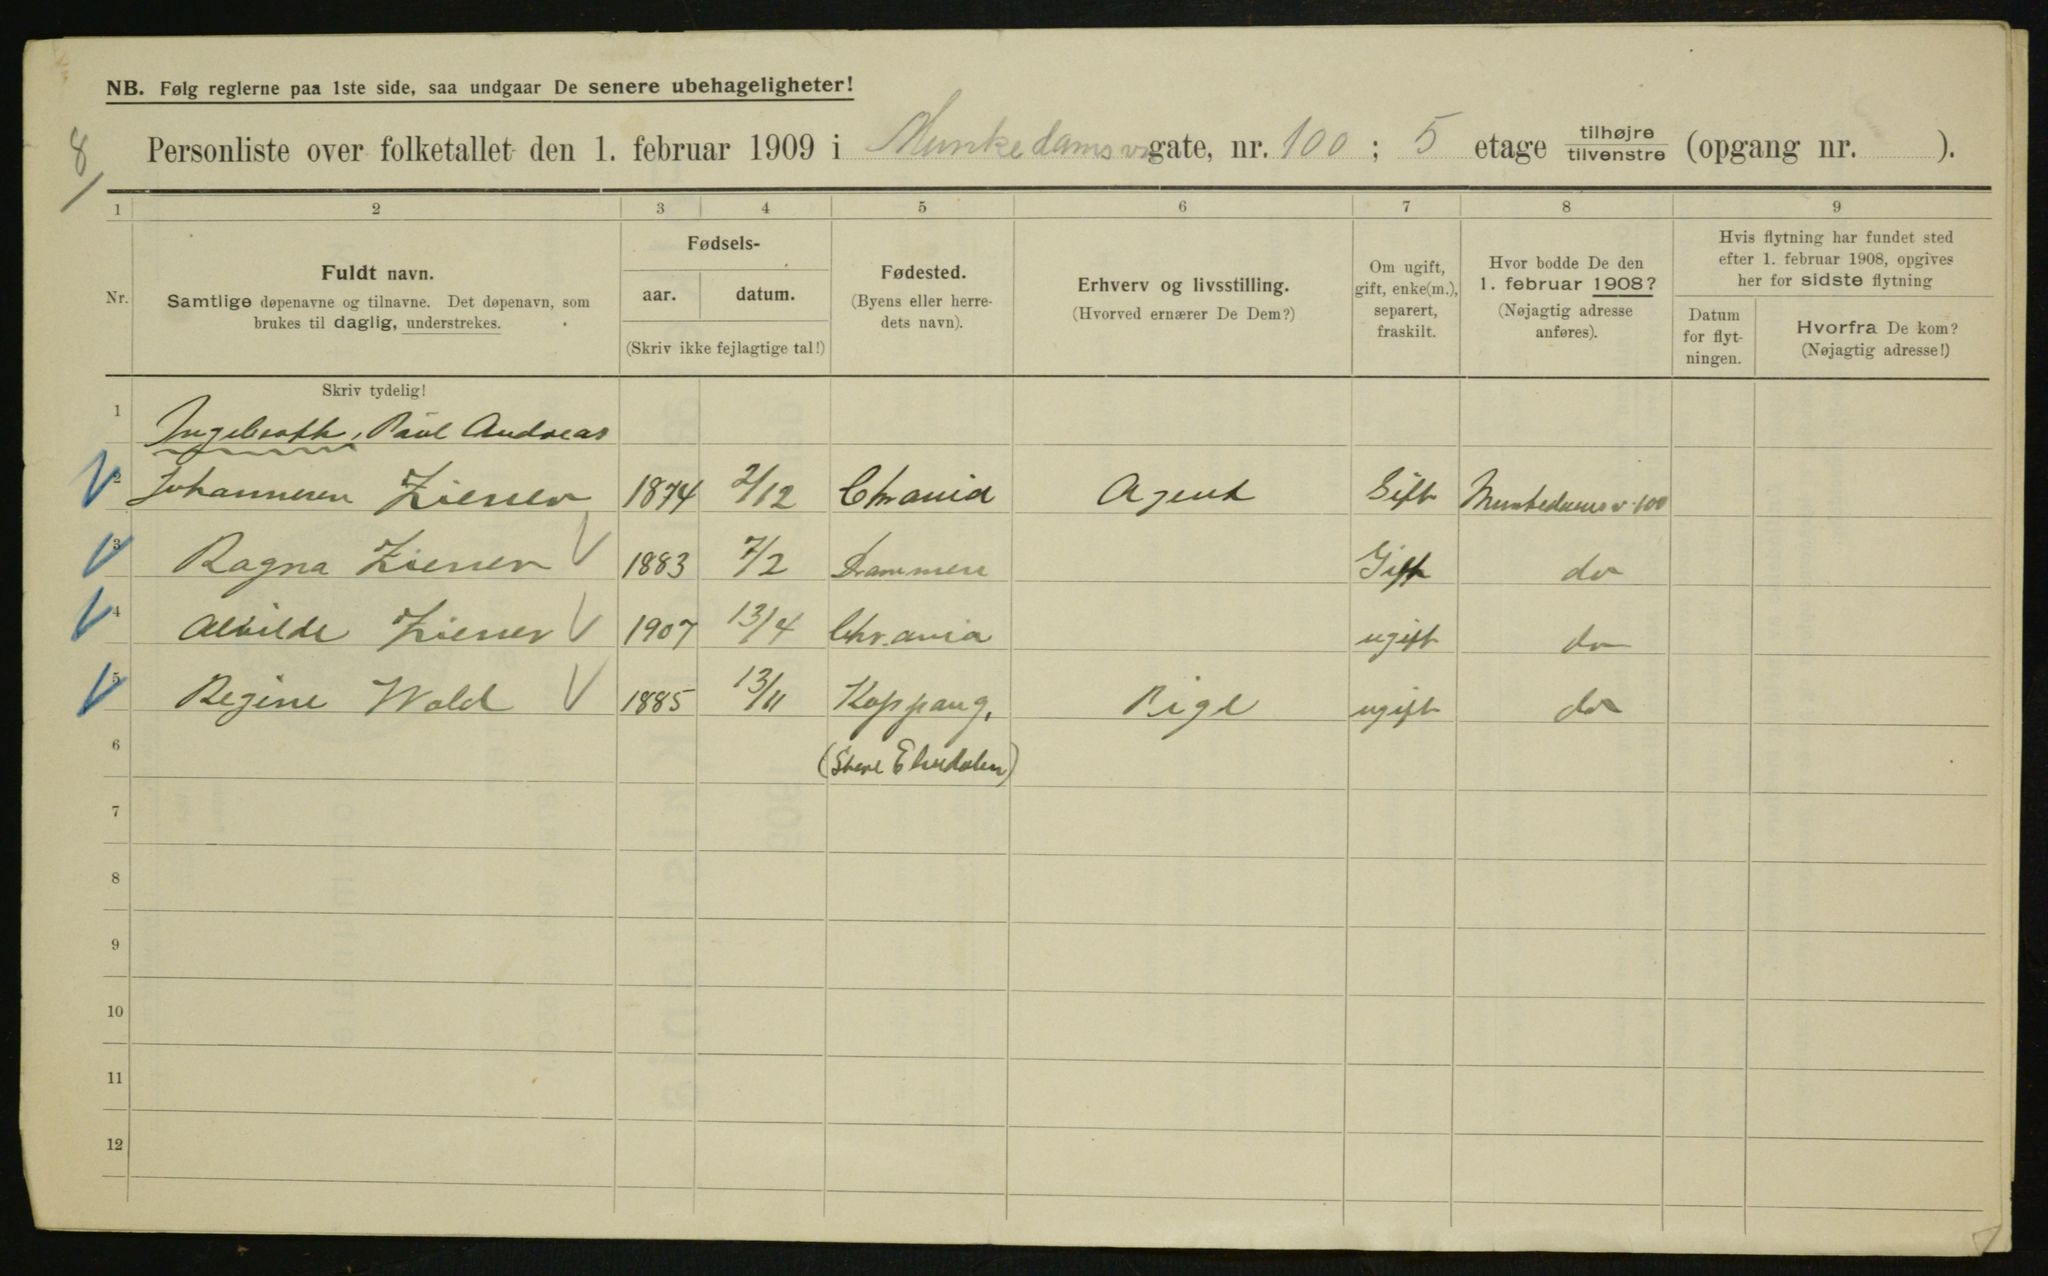 NB. Følg reglerne paa 1ste side, saa undgaar De senere ubehageligheter!
8/
Personliste over folketallet den 1. februar 1909 i Munkedamsvn gate, nr. 100 ; 5 etage tilhøjre/tilvenstre (opgang nr. ).
1 2 3 4 5 6 7 8 9
Nr.
Fuldt navn.
Samtlige døpenavne og tilnavne. Det døpenavn, som
brukes til daglig, understrekes.
Fødsels-
aar. datum.
(Skriv ikke fejlagtige tal!)
Fødested.
(Byens eller herre-
dets navn).
Erhverv og livsstilling.
(Hvorved ernærer De Dem?)
Om ugift,
gift, enke(m.),
separert,
fraskilt.
Hvor bodde De den
1. februar 1908?
(Nøjagtig adresse
anføres).
Hvis flytning har fundet sted
efter 1. februar 1908, opgives
her for sidste flytning
Datum
for flyt-
ningen.
Hvorfra De kom?
(Nøjagtig adresse!)
Skriv tydelig!
1 Paul Andreas
2 Johannesen Ziener 1874 2/12 Chr.ania Agent Gift Munkedamsv. 100
3 Ragna Ziener 1883 7/2 Drammen Gift do
4 Alvilde Ziener 1907 13/4 Chr.ania ugift do
5 Regine Wold 1885 13/11 Koppang, Pige ugift do
6 (Store Elvedalen)
7
8
9
10
11
12